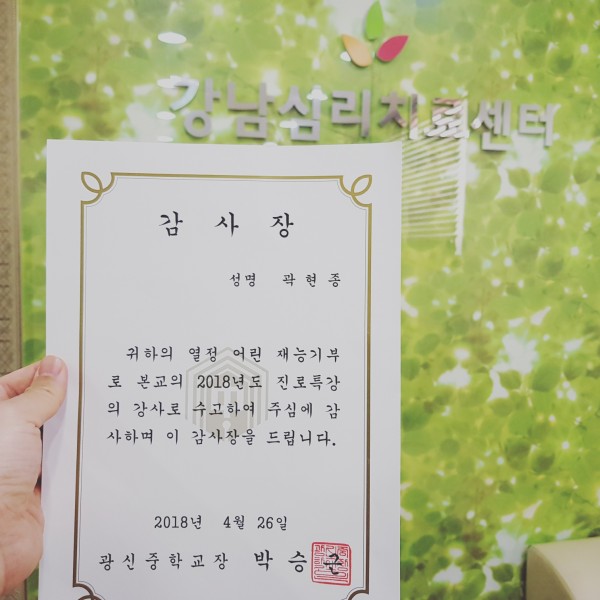 강남심리치료센터
감 사 장
성명 곽현종
귀하의 열정 어린 재능기부
로 본교의 2018년도 진로특강
의 강사로 수고하여 주심에 감
사하며 이 감사장을 드립니다.
2018년 4월 26일
광신중학교장 박승균